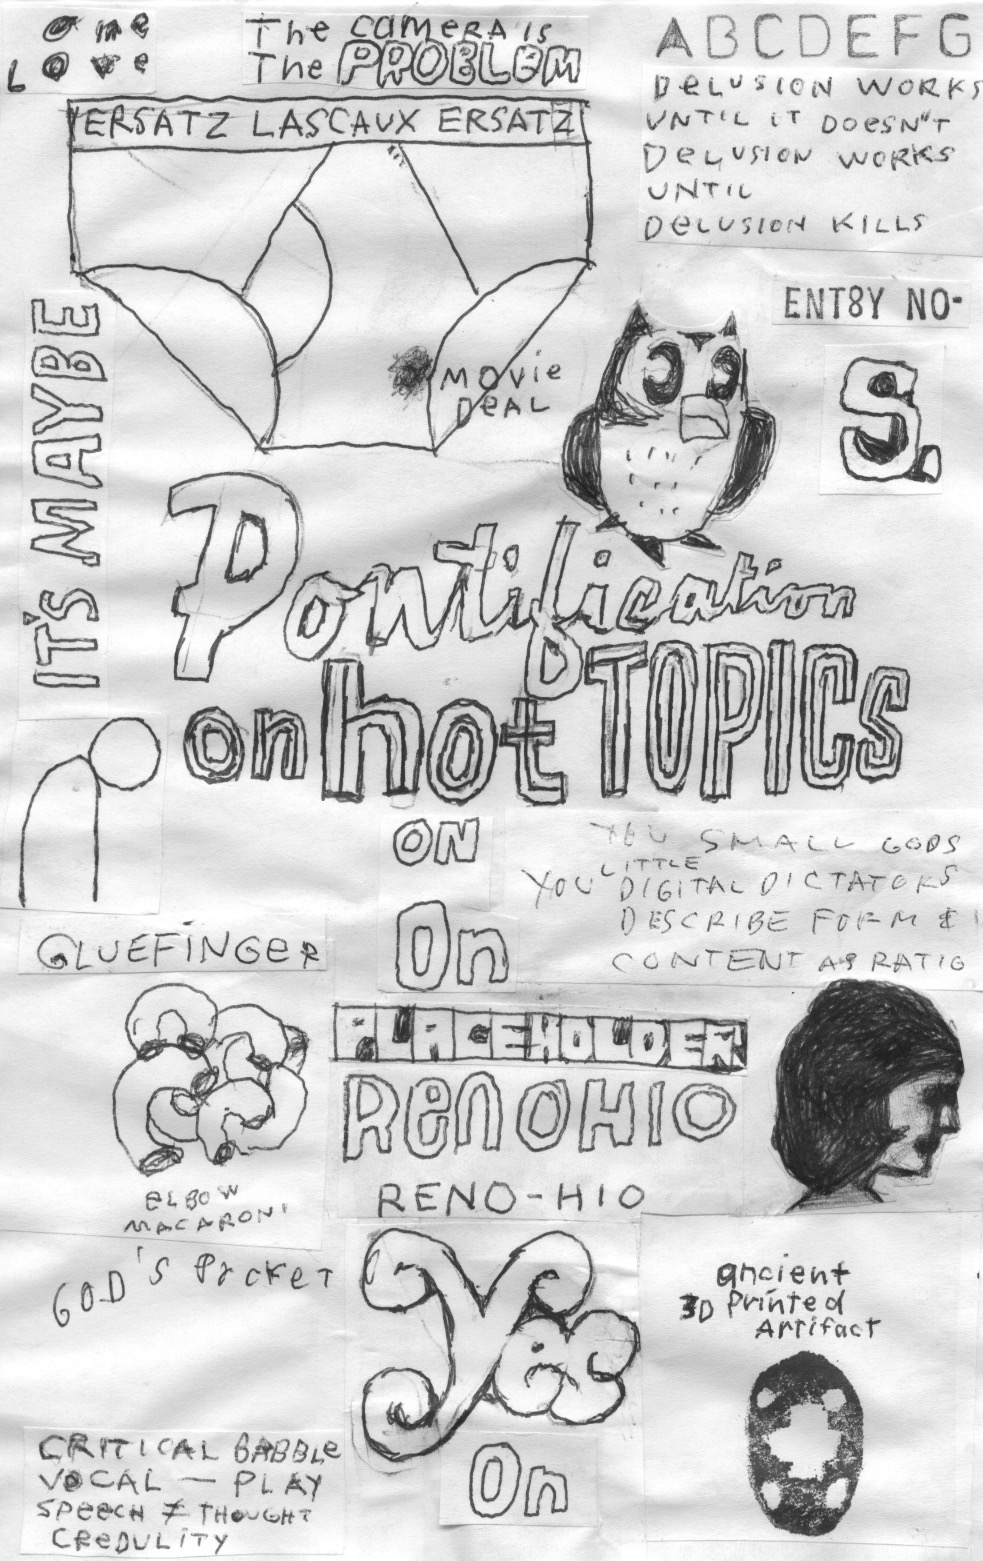 one
Love
The camERA is
The PROBLEM
ABCDEFG
DELUSION WORKS
UNTIL IT DOESN"T
DELUSION WORKS
UNTIL
DELUSION KILLS
ERSATZ LASCAUX ERSATZ
MOVIE
DEAL
ENT8Y NO-
S.
IT'S MAYBE
Pontification
on hot TOPICS
ON
YOU SMALL GODS
YOU LITTLE DIGITAL DICTATORS
DESCRIBE FORM &
CONTENT AS RATIO
On
GLUEFINGER
PLACEHOLDER
RENOHIO
RENO-HIO
ELBOW
MACARONI
GOD'S POCKET
Yes
ancient
3D Printed
Artifact
On
CRITICAL BABBLE
VOCAL — PLAY
SPEECH ≠ THOUGHT
CREDULITY